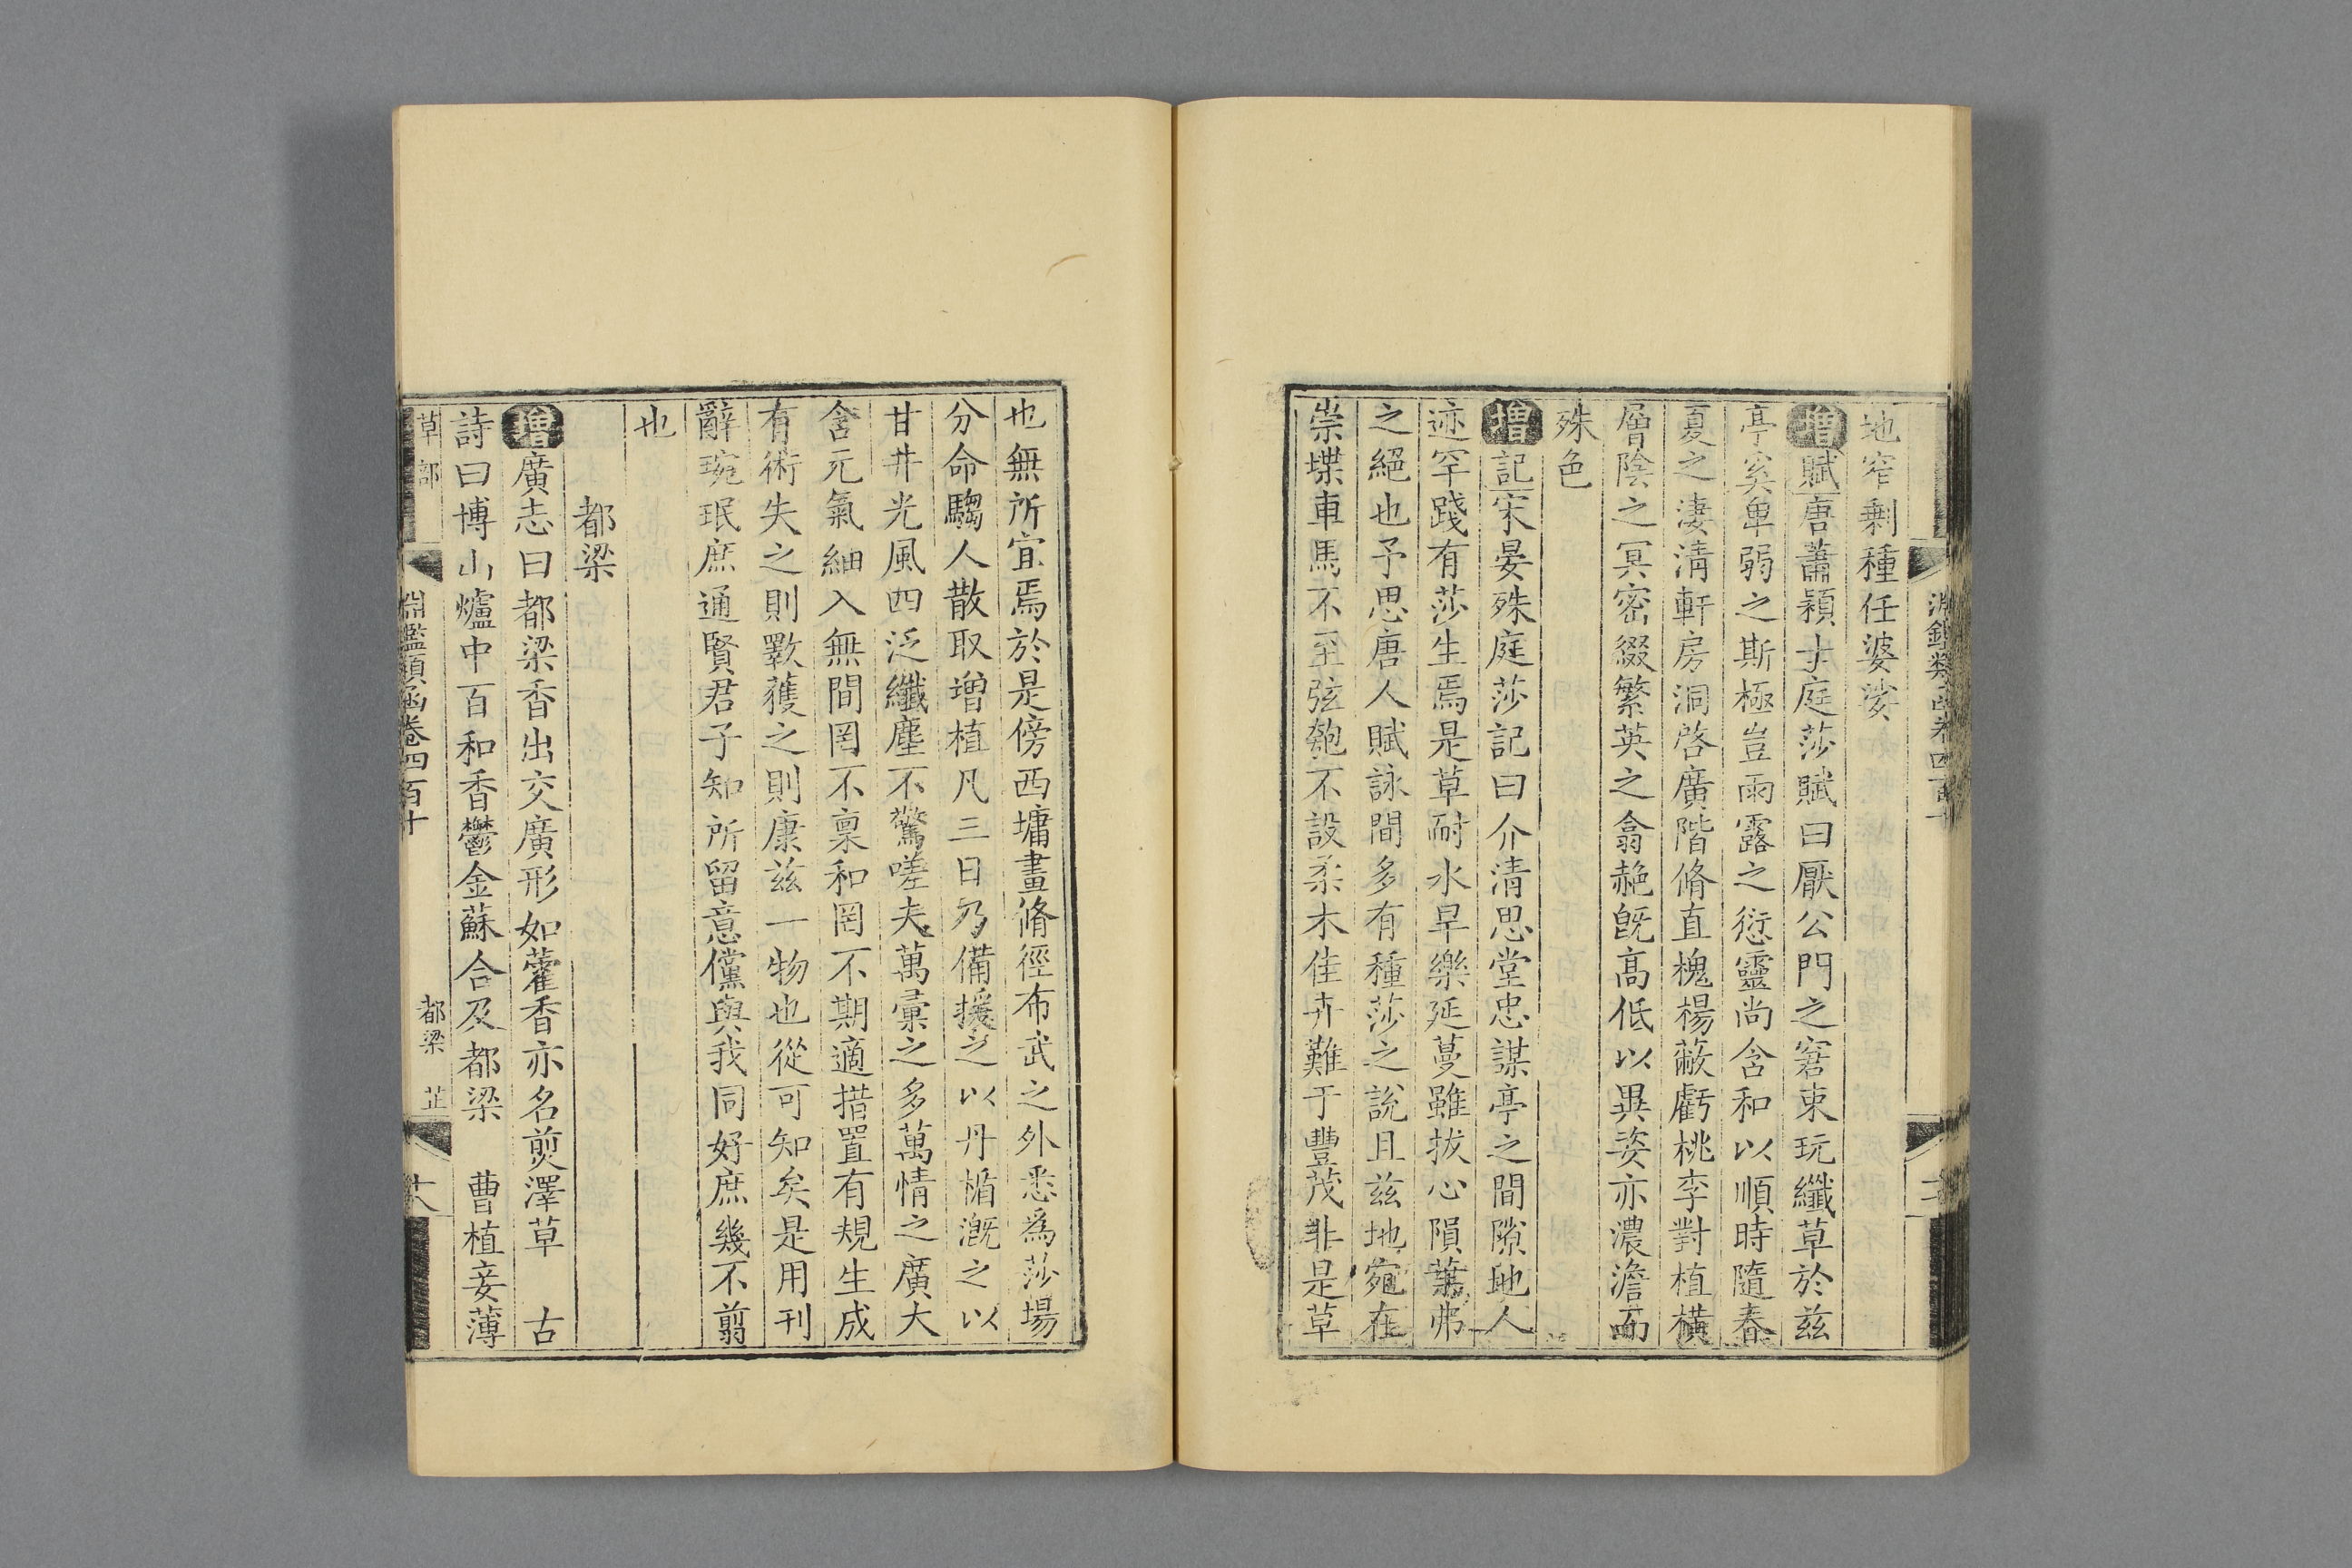 地窄剩種任婆娑
增賦唐蕭穎士庭莎賦曰厭公門之窘束玩纖草於兹
亭奚卑弱之斯極豈雨露之愆靈尚含和以順時隨春
夏之淒清軒房洞啓廣階脩直槐楊蔽虧桃李對植橫
層陰之冥密綴繁英之翕赩旣髙低以異姿亦濃澹而
殊色
增記宋晏殊庭莎記曰介清思堂忠謀亭之間隙地人
迹罕踐有莎生焉是草耐水旱樂延蔓雖拔心隕葉弗
之絕也予思唐人賦詠間多有種莎之說且兹地宛在
崇堞車馬不至弦匏不設柔木佳卉難于豐茂非是草
也無所宜焉於是傍西墉畫脩徑布武之外悉爲莎場
分命騶人散取增植凡三日乃備援之以丹楯漑之以
甘井光風四泛纖塵不驚嗟夫萬彙之多萬情之廣大
含元氣細入無間罔不稟和罔不期適措置有規生成
有術失之則斁蒦之則康兹一物也從可知矣是用刊
辭琬珉庶通賢君子知所留意儻與我同好庶幾不翦
也
都梁
增廣志曰都梁香出交廣形如藿香亦名煎澤草 古
詩曰博山爐中百和香鬱金蘇合及都梁 曹植妾薄
草部
淵鑑類函卷四百十
都梁 芷